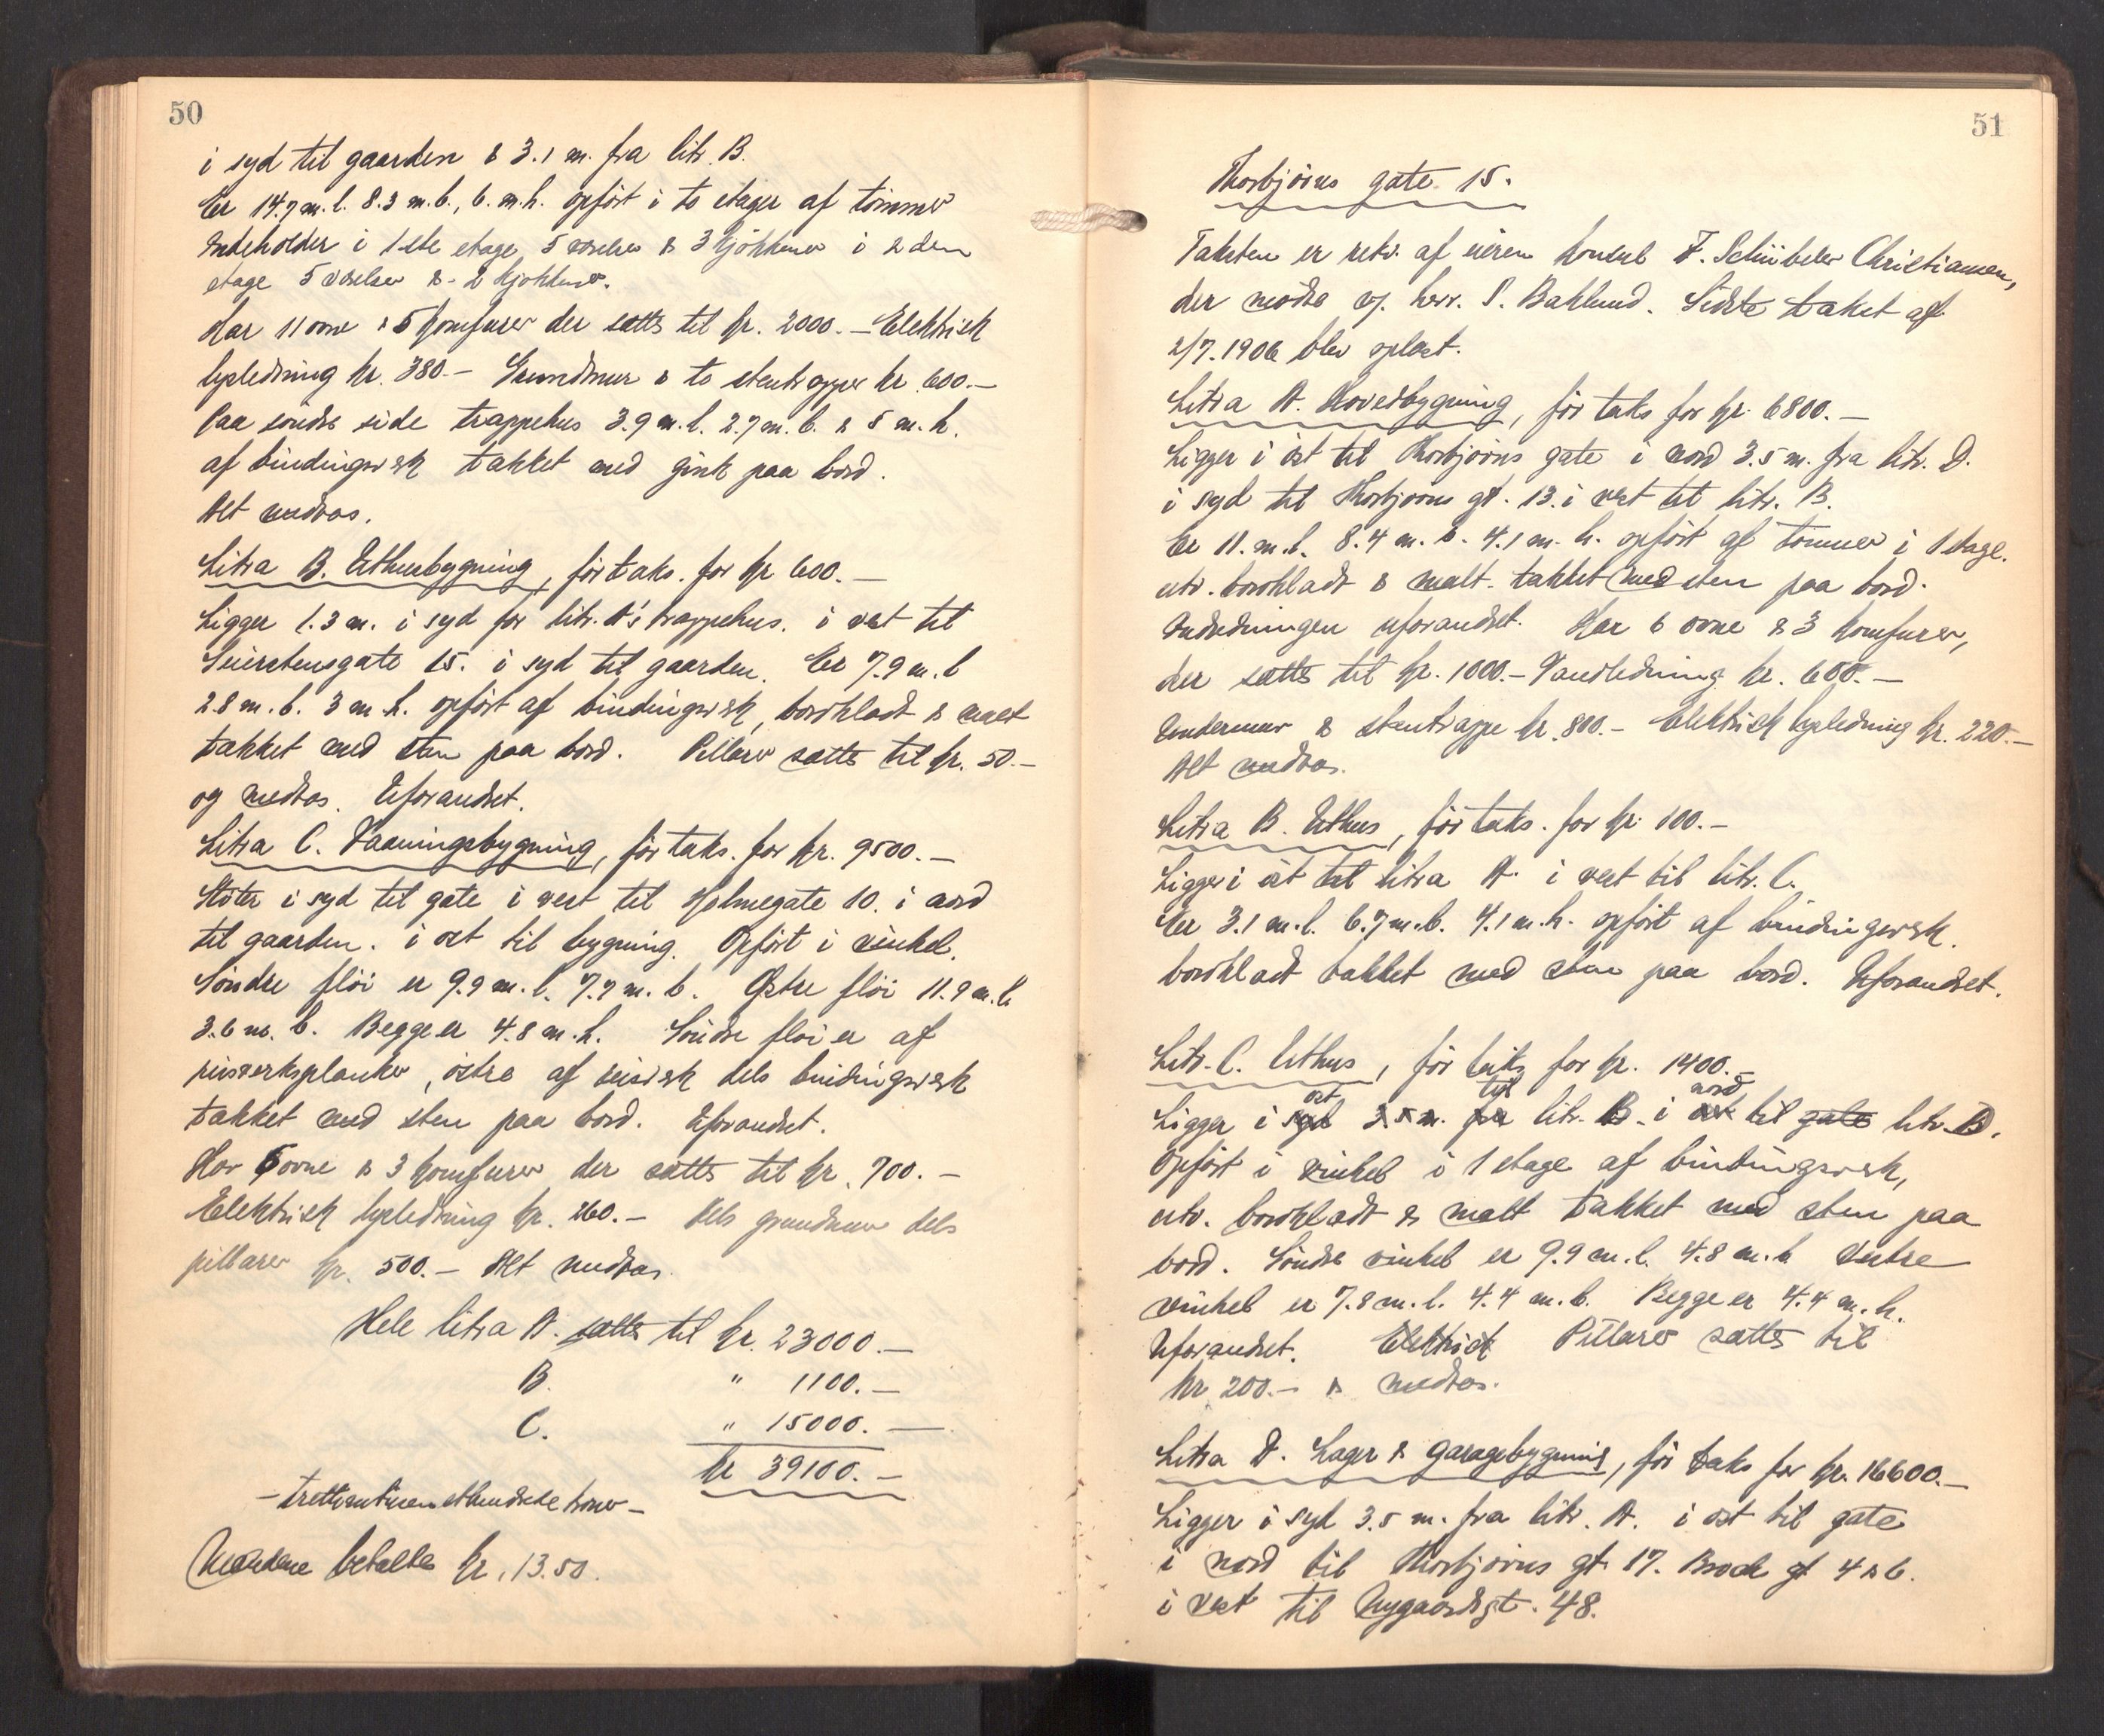 50
i syd til gaarden & 3.1 m. fra litr. B.
Er 14.7 m. l. 8.3 m. b., 6. m. h. opført i to etager af tømmer
Indeholder i 1ste etage 5 værelser & 3 kjøkkener i 2den
etage 5 værelser & 2 kjøkkener.
Har 11 ovne & 5 komfurer der sættes til kr. 2000.— Elektrisk
lysledning kr. 380.— Grundmur & to stentrapper kr. 600.—
Paa søndre side trappehus 3.9 m. l. 2.7 m. b. & 5 m. h.
af bindingsverk takket med zink paa bord.
Alt medtas.
Litra B. Uthusbygning, før taks. for kr 600.—
Ligger 1.3 m. i syd for litr. A's trappehus. i vest til
Steinsgate 15. i syd til gaarden. Er 7.9 m. l
2.8 m. b. 3 m. h. opført af bindingsverk, bordklædt & malt
takket med sten paa bord. Pillarer sættes til kr. 50.—
og medtas. Uforandret.
Litra C. Vaaningsbygning, før taks. for kr. 9500.—
Støter i syd til gate i vest til Holmegate 10. i nord
til gaarden. i øst til bygning. Opført i vinkel.
Søndre fløi er 9.9 m. l. 7.7 m. b. Østre fløi 11.9 m. l.
3.6 m. b. Begge er 4.8 m. h. Søndre fløi er af
reisverksplanker, østre af reisverk dels bindingsverk
takket med sten paa bord. Uforandret.
Har 6 ovne & 3 komfurer der sættes til kr. 700.—
Elektrisk lysledning kr. 260.— Dels grundmur dels
pillarer kr. 500.— Alt medtas.
Hele litra A. sættes til kr. 23000.—
B. " 1100.—
C. " 15000.—
kr 39100.—
— trettinitusenetthundrede kroner —
Mændene betaltes kr. 13.50.
51
Thorbjørns gate 15.
Taksten er rekv. af eieren konsul F. Schübeler Christiansen,
der mødte v/ herr. S. Baklund. Sidste takst af
2/7. 1906 blev oplæst.
Litra A. Hovedbygning, før taks for kr. 6800.—
Ligger i øst til Thorbjørns gate i nord 3.5 m. fra litr. D.
i syd til Thorbjørns gt. 13. i vest til litr. B.
Er 11. m. l. 8.4 m. b. 4.1 m. h. opført af tømmer i 1 etage.
utv. bordklædt & malt. takket med sten paa bord.
Indredningen uforandret. Har 6 ovne & 3 komfurer,
der sættes til kr. 1000.— Vandledning kr. 600.—
Undermur & stentrappe kr 800.— Elektrisk lysledning kr. 220.—
Alt medtas.
Litra B. Uthus, før taks. for kr. 100.—
Ligger i øst til litra A. i vest til litr. C.
Er 3.1 m. l. 6.7 m. b. 4.1 m. h. opført af bindingsverk.
bordklædt takket med sten paa bord. Uforandret.
Litr. C. Uthus, før taks for kr. 1400.—
øst til nord
Ligger i syd 3.5 m. fra litr. B. i øst til gate litr. D.
Opført i vinkel i 1 etage af bindingsverk,
utv. bordklædt & malt takket med sten paa
bord. Søndre vinkel er 9.9 m. l. 4.8 m. b. Vestre
vinkel er 7.8 m. l. 4.4 m. b. Begge er 4.4 m. h.
Uforandret. Elektrisk Pillarer sættes til
kr 200.— & medtas.
Litra D. Lager & garagebygning, før taks for kr. 16600.—
Ligger i syd 3.5 m. fra litr. A. i øst til gate
i nord til Thorbjørns gt. 17. Brode gt 4 & 6.
i vest til Nygaardsgt. 48.